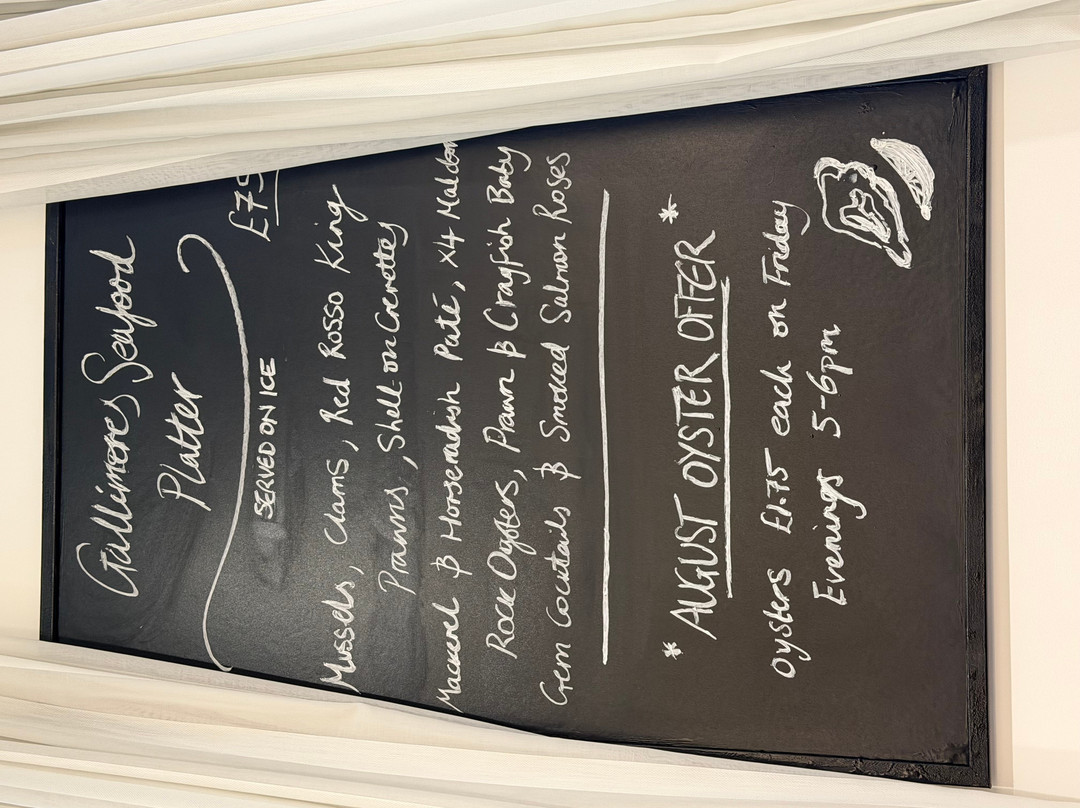 Gallimores Seafood
Platter
SERVED ON ICE
£75
Mussels, Clams, Red Rosso King
Prawns, Shell-on Crevettes
Mackerel & Horseradish Paté, x4 Maldon
Rock Oysters, Prawn & Crayfish Baby
Gem Cocktails & Smoked Salmon Roses
* AUGUST OYSTER OFFER *
Oysters £1.75 each on Friday
Evenings 5-6pm